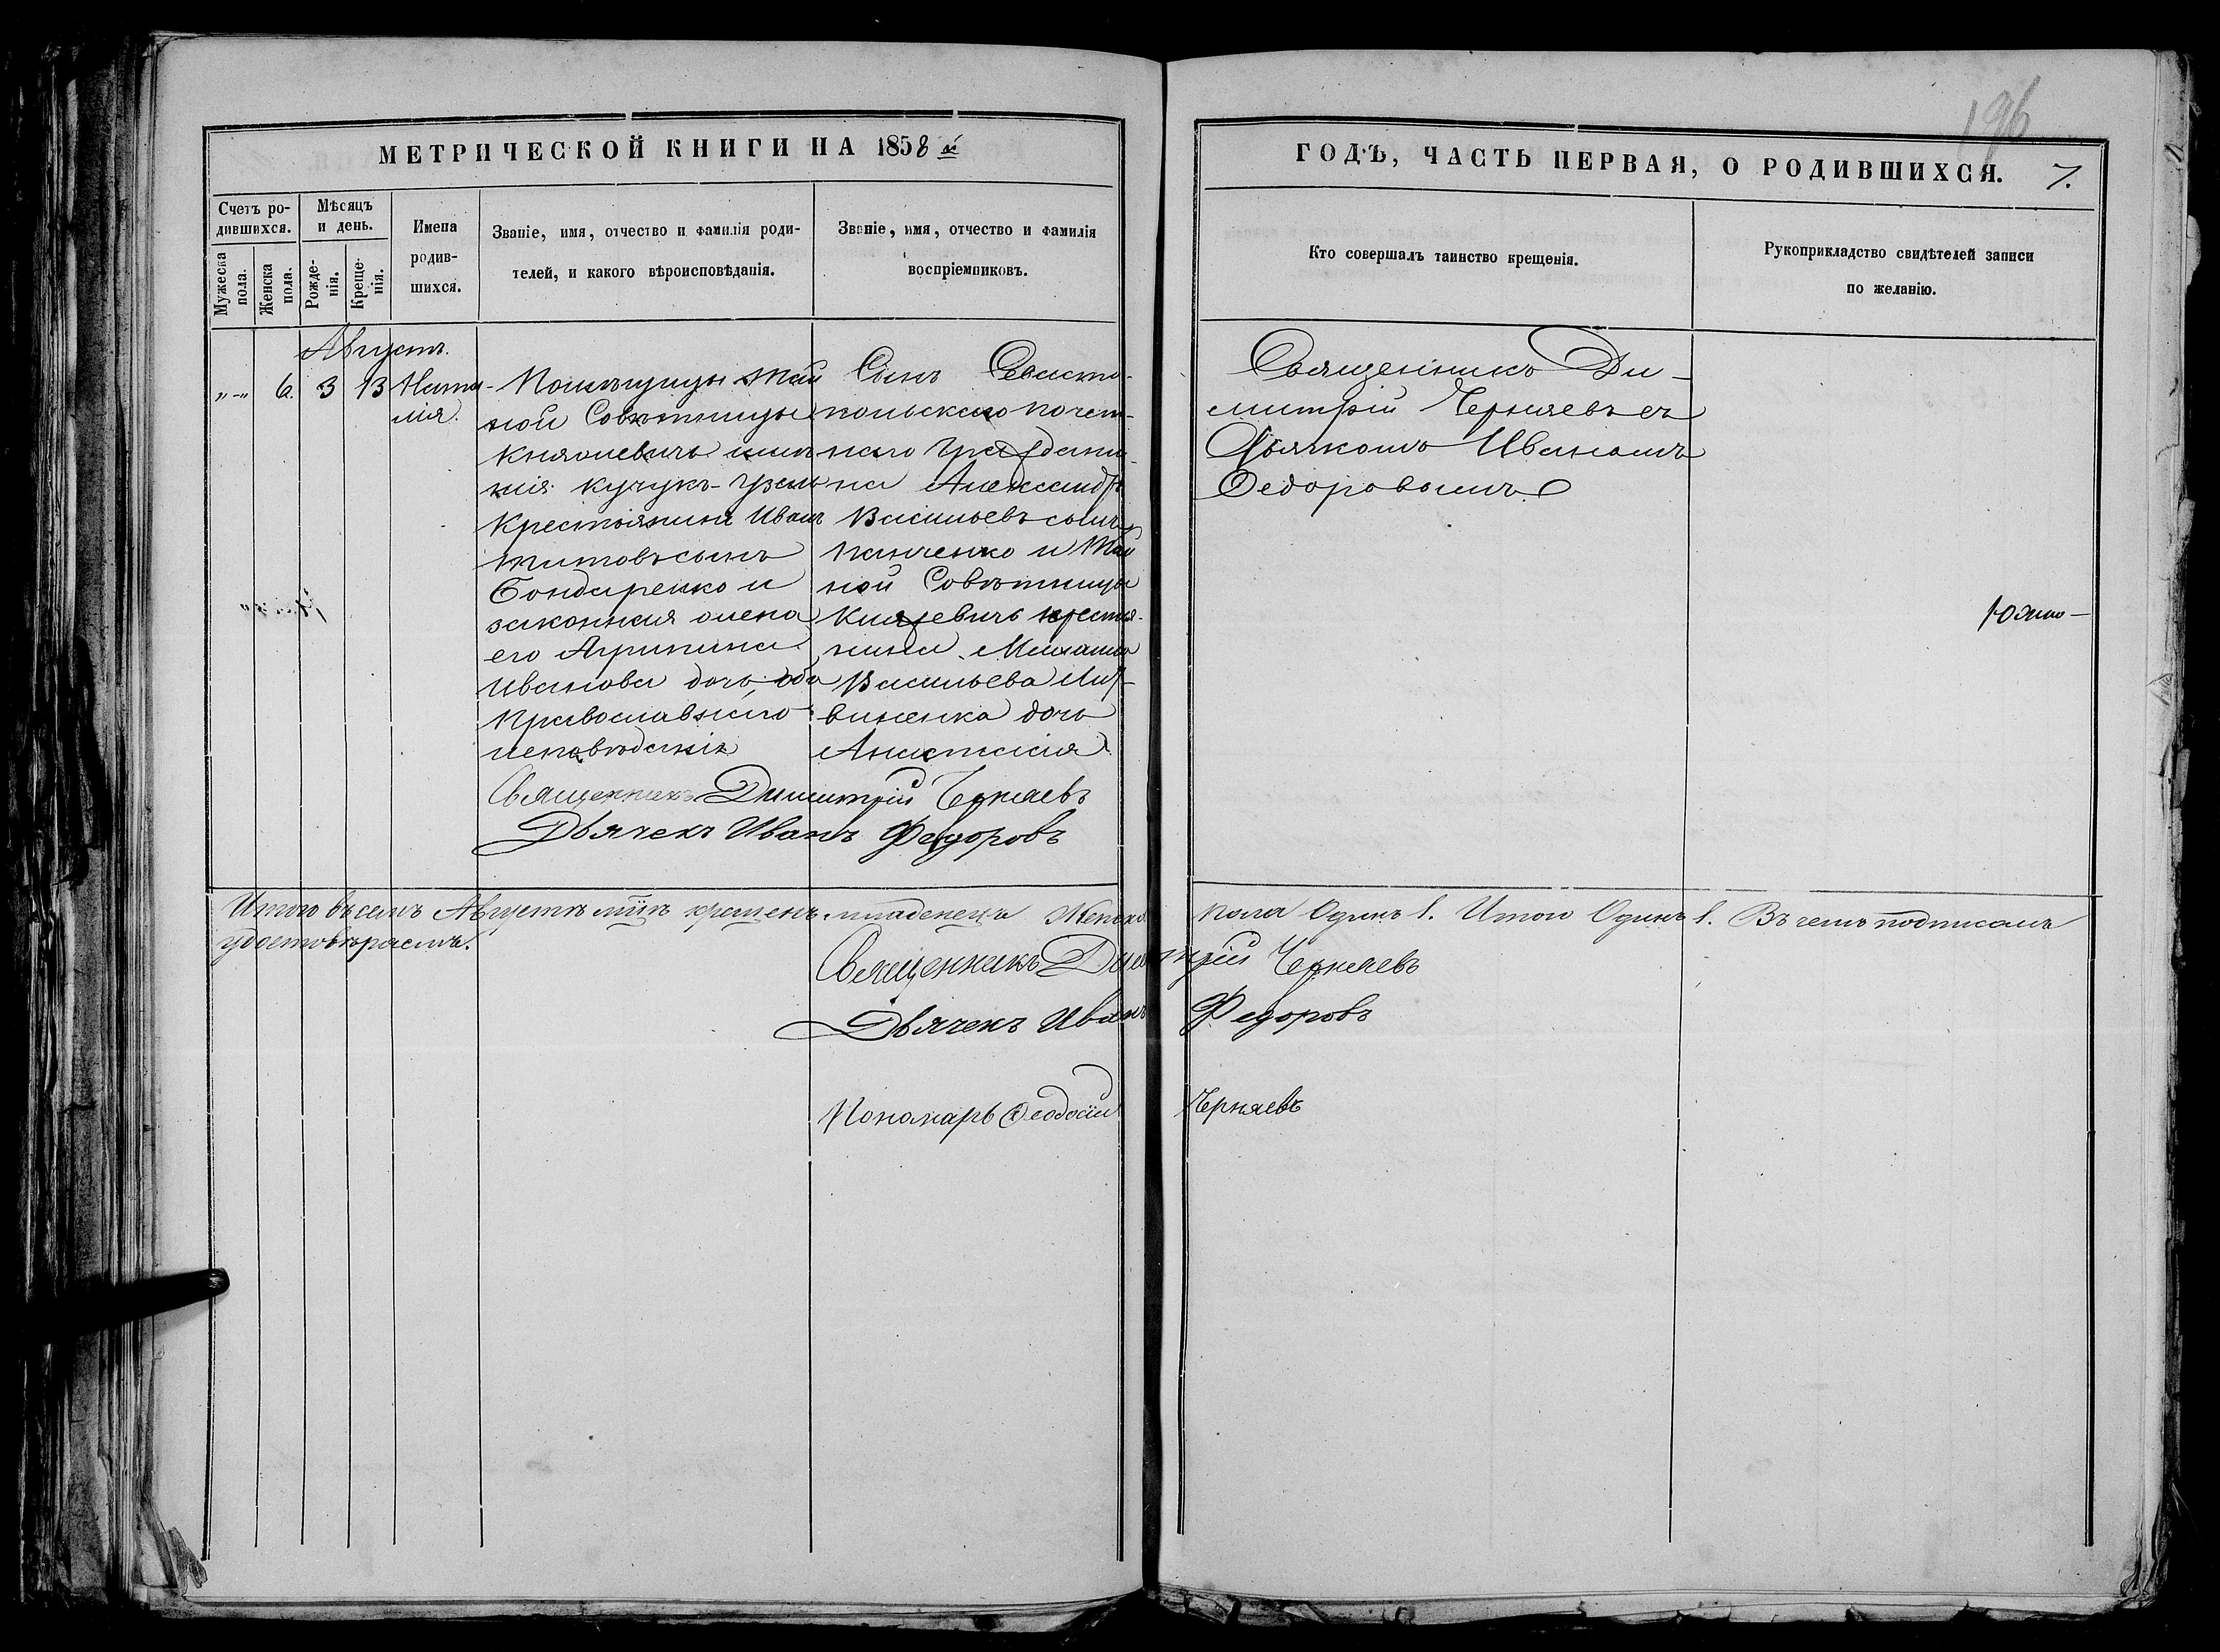 196
МЕТРИЧЕСКОЙ КНИГИ НА 1858 й
ГОДЪ, ЧАСТЬ ПЕРВАЯ, О РОДИВШИХСЯ. 7.
Счетъ ро-
дившихся.
Мужеска
пола.
Женска
пола.
Мѣсяцъ
и день.
Рожде-
нія.
Креще-
нія.
Имена
родив-
шихся.
Званіе, имя, отчество и фамилія роди-
телей, и какого вѣроисповѣданія.
Званіе, имя, отчество и фамилія
воспріемниковъ.
Кто совершалъ таинство крещенія.
Рукоприкладство свидѣтелей записи
по желанію.
Августъ.
„-„ 6. 3 13
Ната-
лія.
Помѣщицы Тай
ной Совѣтницы
Княжевичь имѣ
нія Кучукъ-
Крестьянинъ Иванъ
Титовъ сынъ
Бондаренко и
законная жена
его Агрипина
Иванова дочь, оба
Православнаго
исповѣданія
Сынъ Севасто-
польскаго почет-
наго граждани-
на Александръ
Васильевъ сынъ
Панченко и Тай
ной Совѣтницы
Княжевичь крестья-
нина Михаила
Васильева Лит-
виненка дочь
Анастасія
Священникъ Димитрій Черняевъ
Дьячекъ Иванъ Федоровъ
Священникъ Ди-
митрій Черняевъ съ
Дьячкомъ Иваномъ
Федоровымъ
Южно-
Итого въ семъ Августѣ мцѣ крещенъ младенецъ Женска пола Одинъ 1. Итого Одинъ 1. Въ чемъ подписомъ
удостовѣряемъ.
Священникъ Димитрій Черняевъ
Дьячекъ Иванъ Федоровъ
Пономарь Феодосій Черняевъ